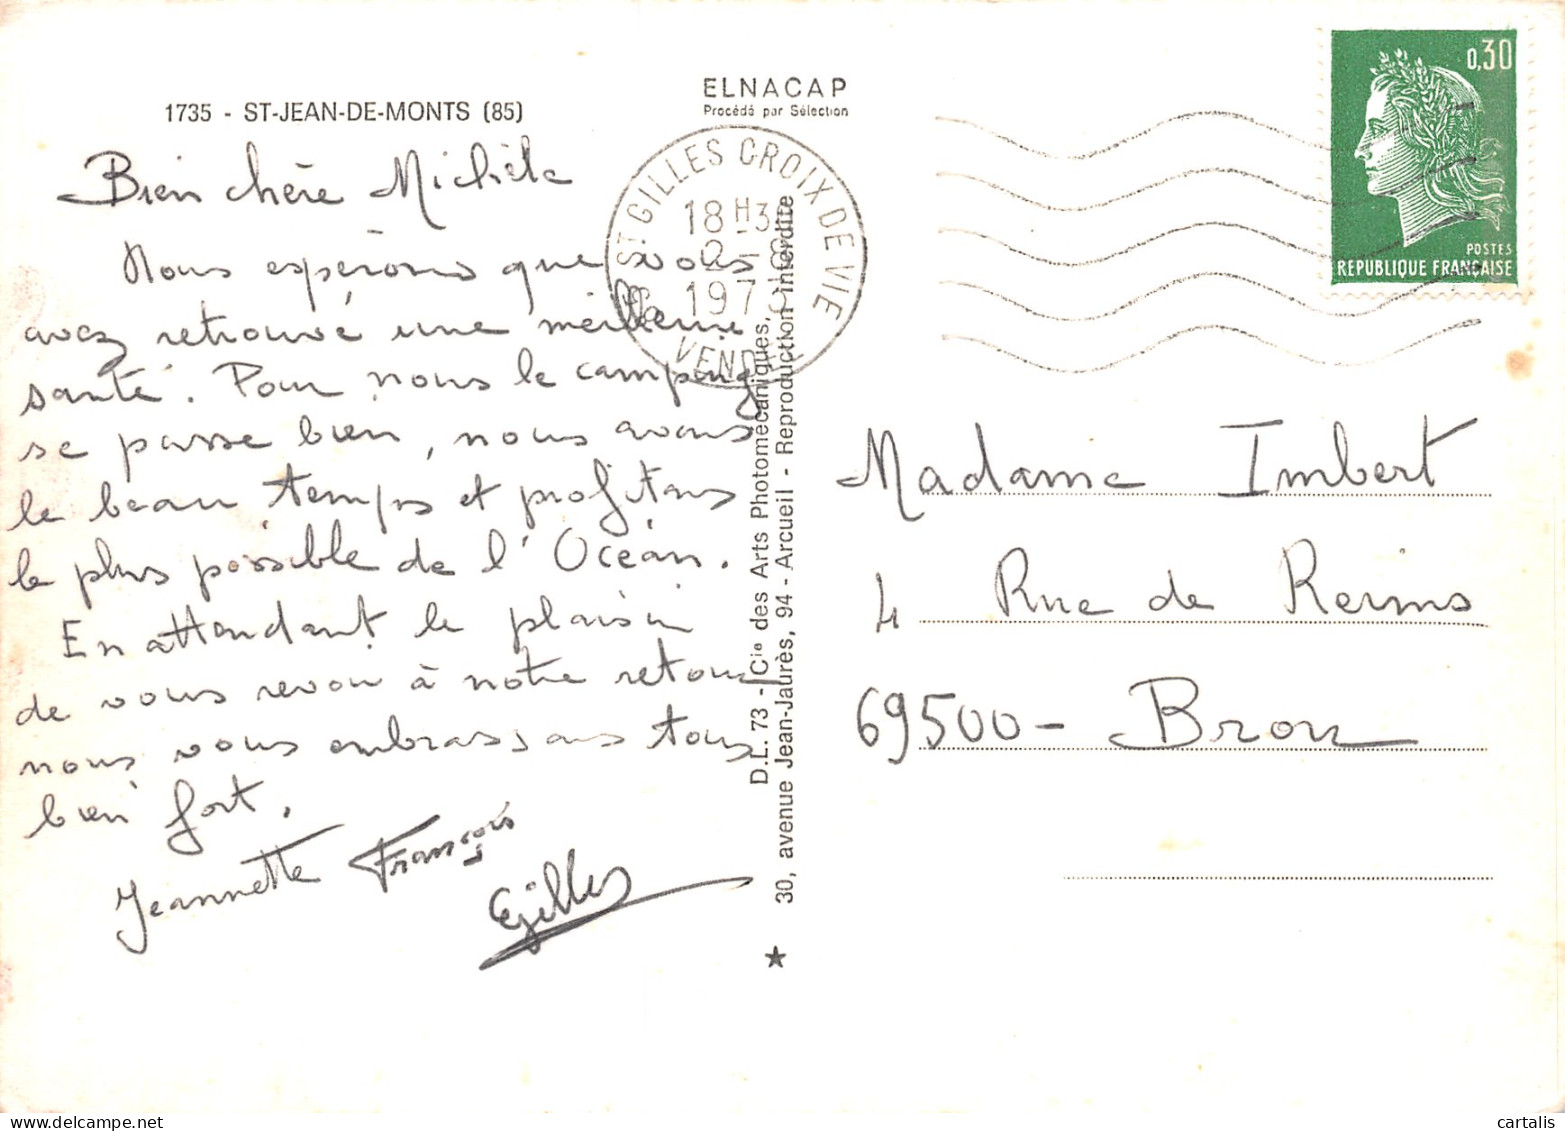 1735 - ST-JEAN-DE-MONTS (85)
Bien chère Michèle
Nous espérons que vous
avez retrouvé une meilleure
santé. Pour nous le camping
se passe bien, nous avons
le beau temps et profitons
le plus possible de l'Océan.
En attendant le plaisir
de vous revoir à notre retour
nous vous embrassons tous
bien fort.
Jeannette François
Gilles
ELNACAP
Procédé par Sélection
ST GILLES CROIX DE VIE
18 H 3
2 - 8
197
VENDÉE
D.L. 73 - Cie des Arts Photomécaniques,
30, avenue Jean-Jaurès, 94 - Arcueil - Reproduction interdite
0,30
POSTES
REPUBLIQUE FRANÇAISE
Madame Imbert
4 Rue de Reims
69500 - Bron
www.cartalis.com